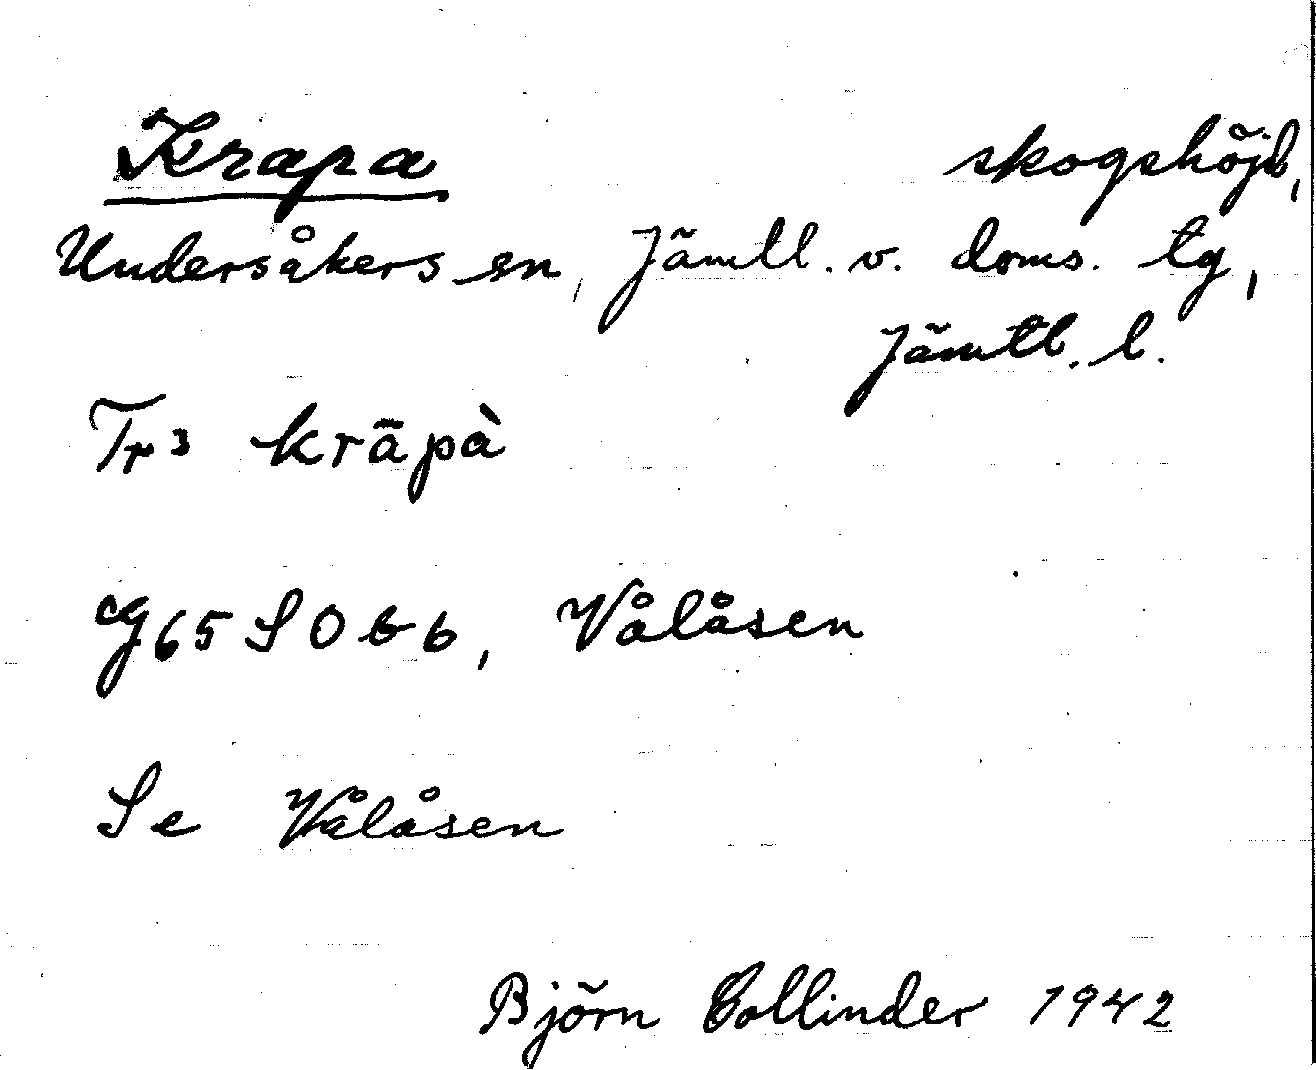 Krapa skogshöjd,
Undersåkers sn, Jämtl. v. doms. tg,
Jämtl. l.
Tr3 krāpà
65 SO b b, Vålåsen
Se Vålåsen
Björn Collinder 1942